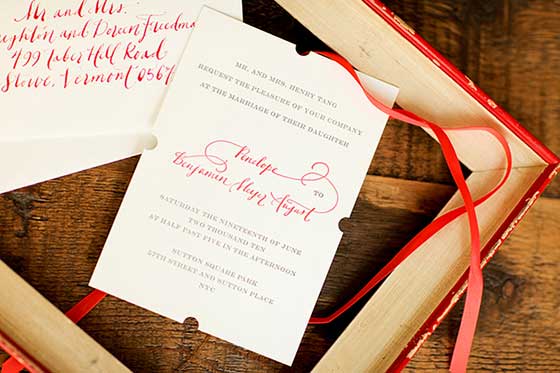 Mr. and Mrs.
and Doreen Freedman
499 Taber Hill Road
Stowe, Vermont 0567
MR. AND MRS. HENRY TANG
REQUEST THE PLEASURE OF YOUR COMPANY
AT THE MARRIAGE OF THEIR DAUGHTER
Penelope
TO
Benjamin Meyer August
SATURDAY THE NINETEENTH OF JUNE
TWO THOUSAND TEN
AT HALF PAST FIVE IN THE AFTERNOON
SUTTON SQUARE PARK
57TH STREET AND SUTTON PLACE
NYC